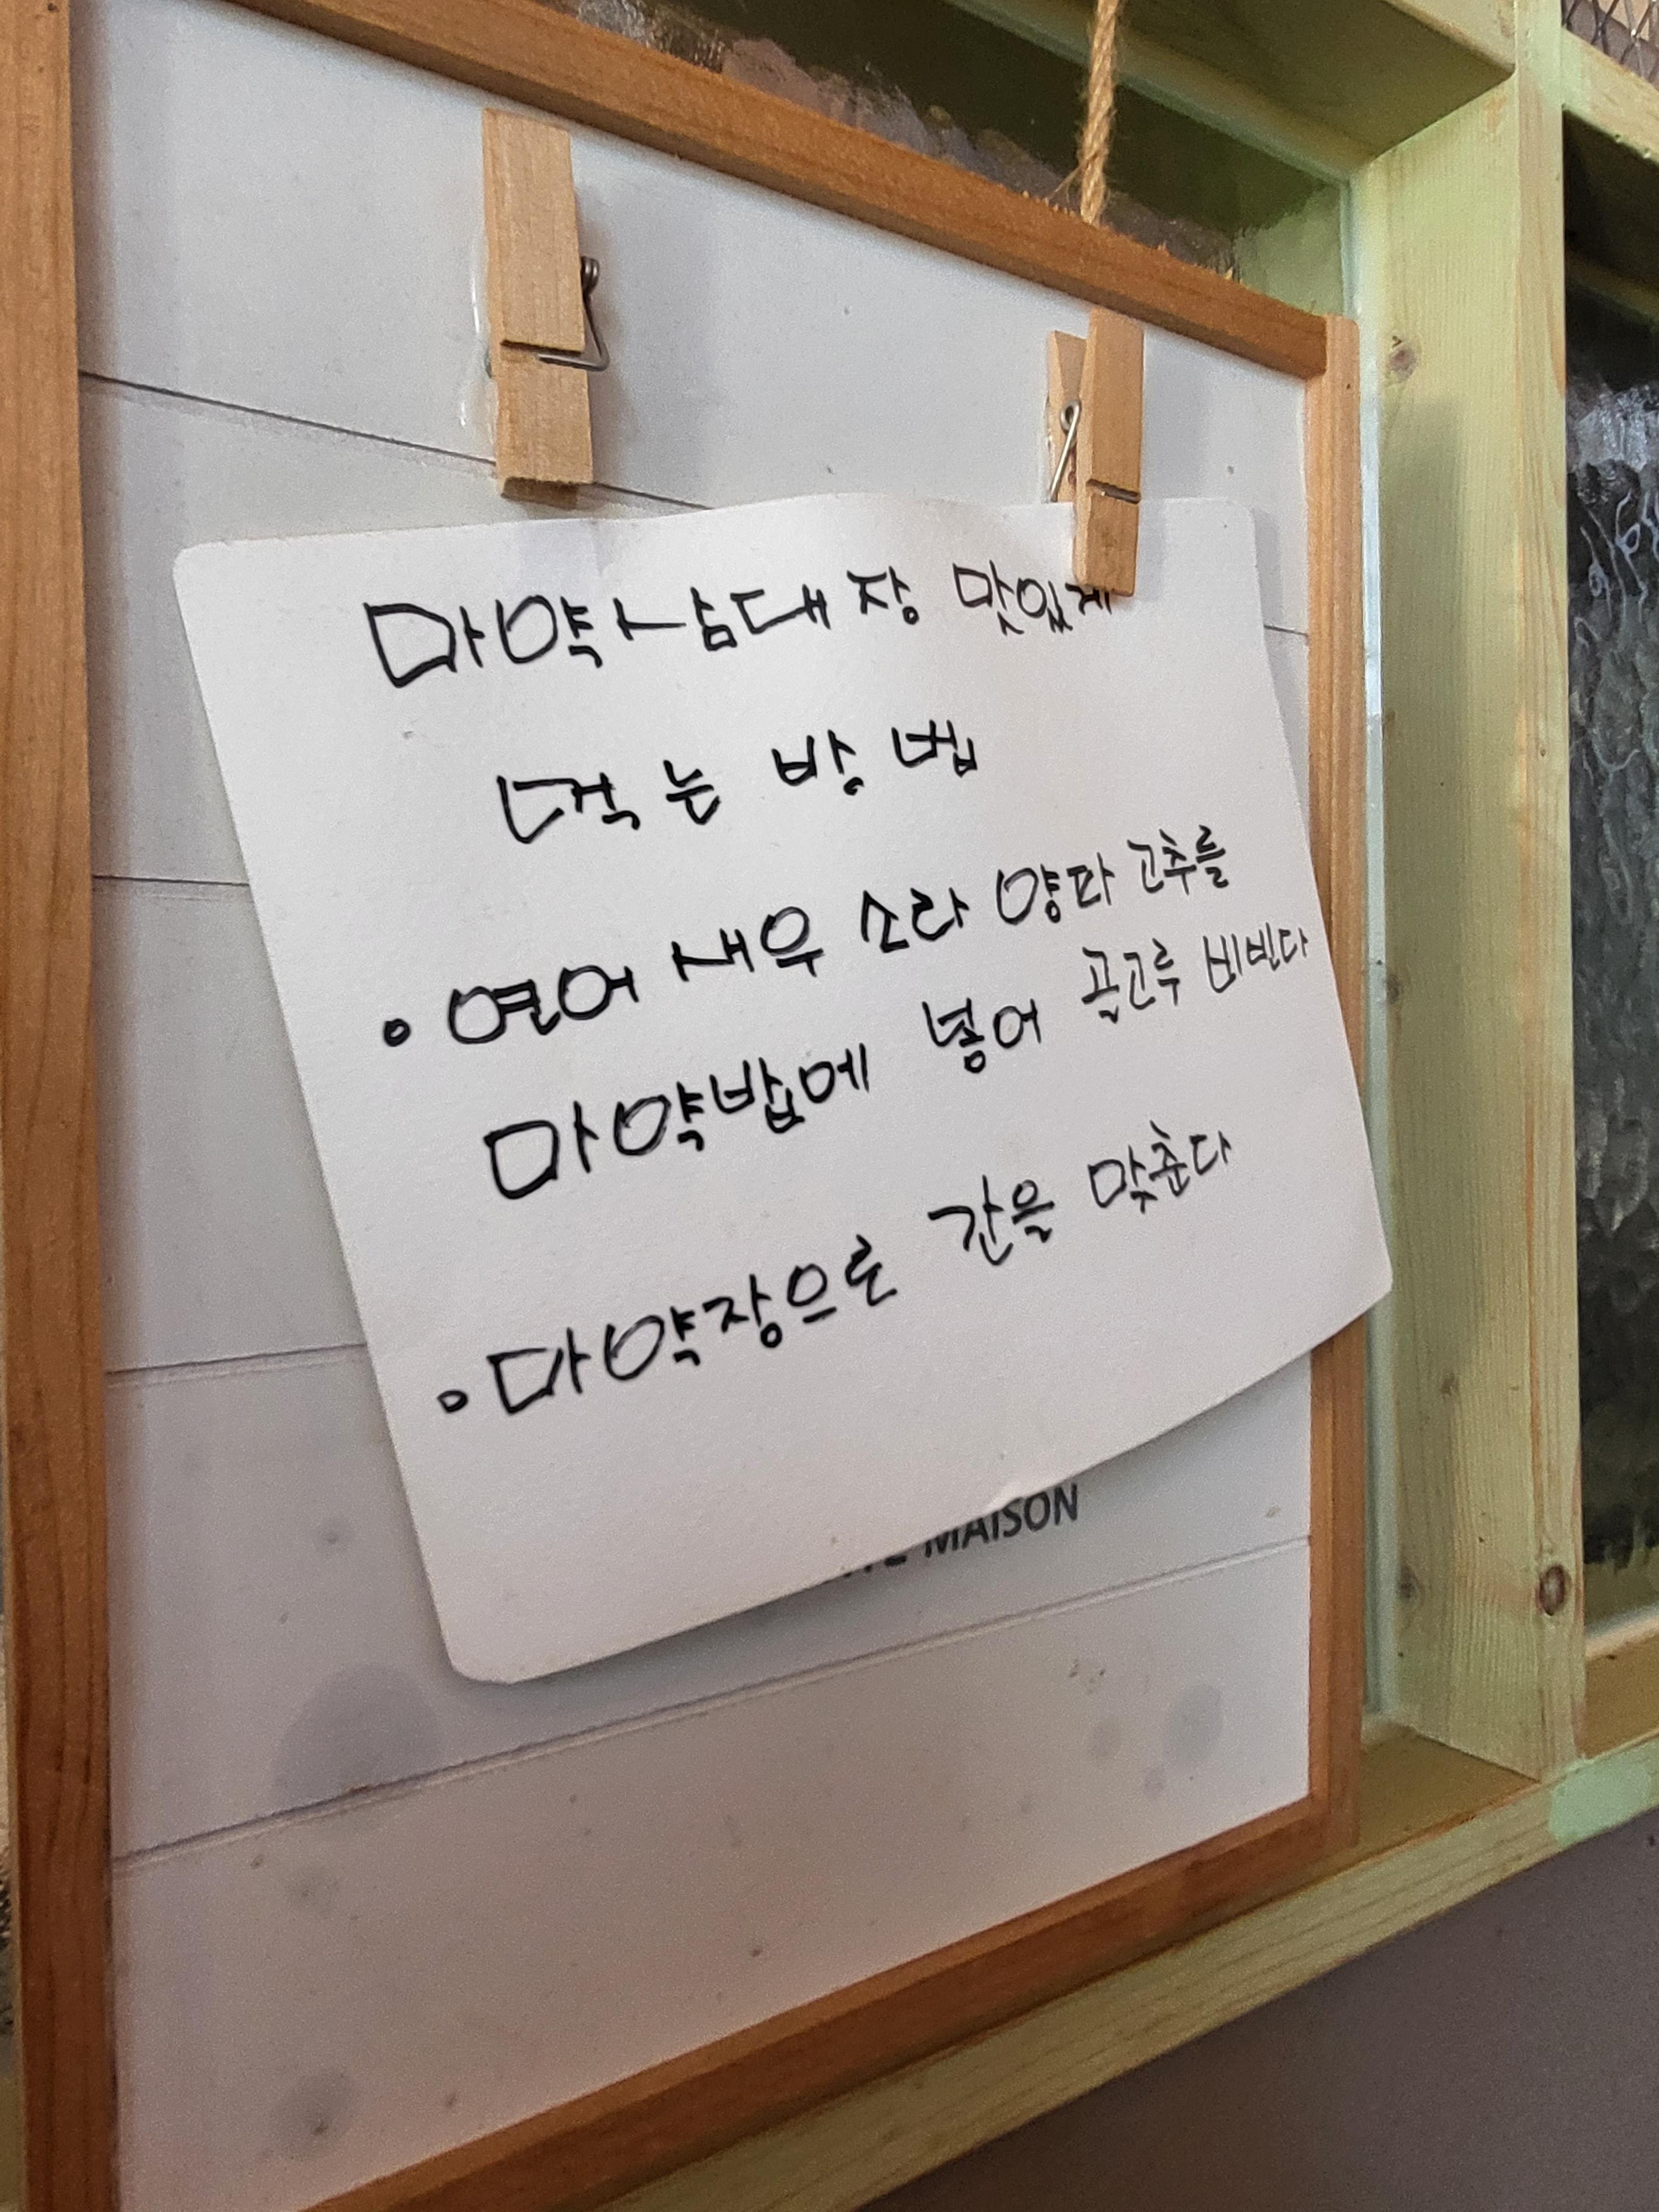 마약삼대장 맛있게
먹는 방법
• 연어 새우 소라 양파 고추를
마약밥에 넣어 골고루 비빈다
• 마약장으로 간을 맞춘다
MAISON